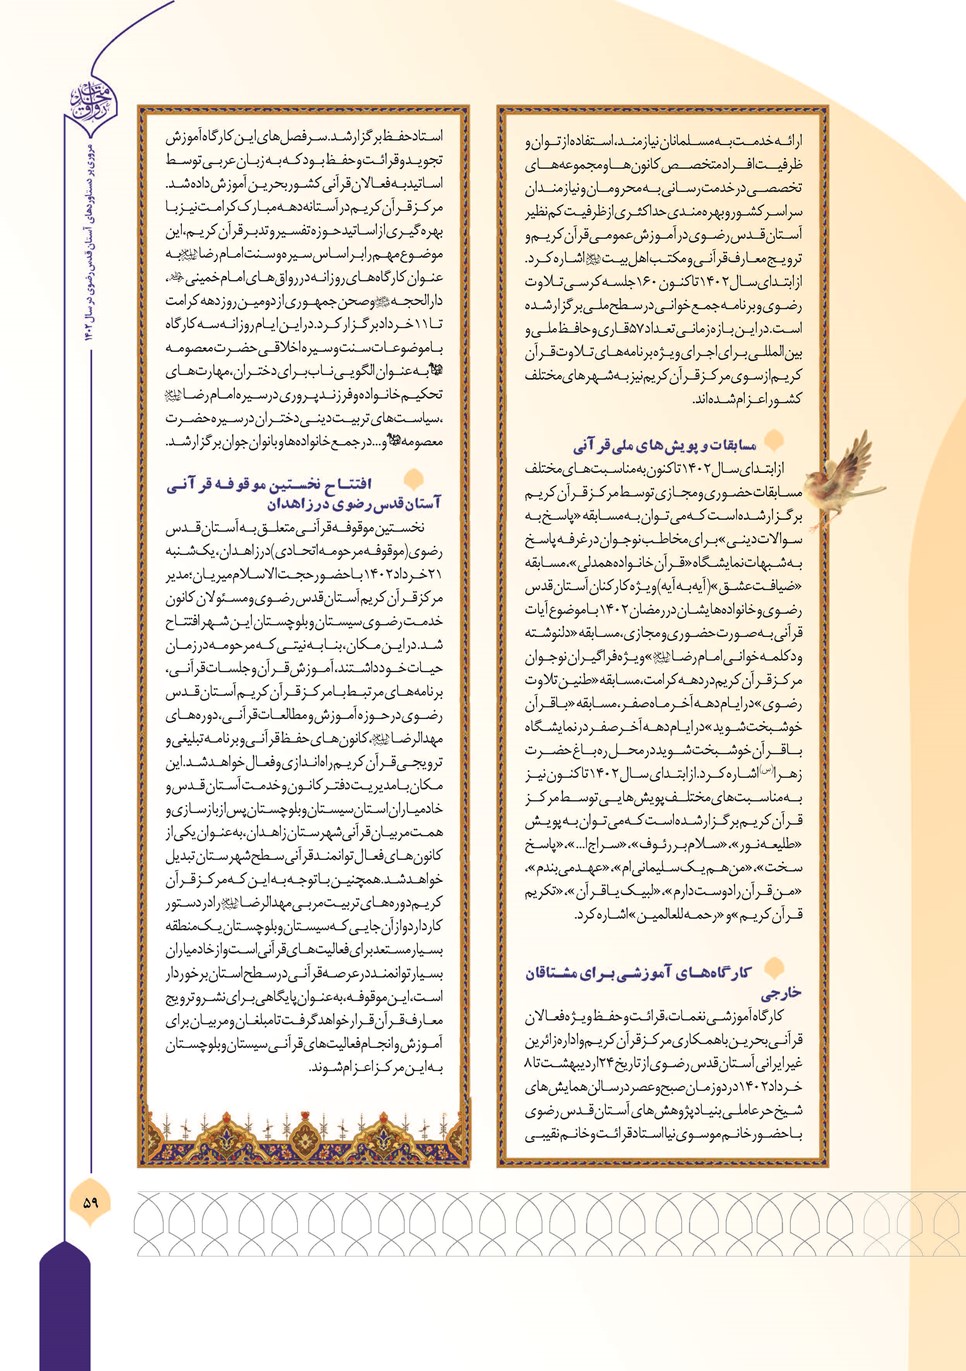 مروری بر دستاوردهای آستان قدس رضوی در سال ۱۴۰۲
ارائه خدمت به مسلمانان نیازمند، استفاده از توان و
ظرفیت افراد متخصص کانون‌ها و مجموعه‌های
تخصصی در خدمت رسانی به محرومان و نیازمندان
سراسر کشور و بهره‌مندی حداکثری از ظرفیت کم نظیر
آستان قدس رضوی در آموزش عمومی قرآن کریم و
ترویج معارف قرآنی و مکتب اهل بیت اشاره کرد.
از ابتدای سال ۱۴۰۲ تا کنون ۱۶۰ جلسه کرسی تلاوت
رضوی و برنامه جمع خوانی در سطح ملی برگزار شده
است. در این بازه زمانی تعداد ۵۷ قاری و حافظ ملی و
بین المللی برای اجرای ویژه برنامه‌های تلاوت قرآن
کریم از سوی مرکز قرآن کریم نیز به شهرهای مختلف
کشور اعزام شده‌اند.
مسابقات و پویش‌های ملی قرآنی
از ابتدای سال ۱۴۰۲ تا کنون به مناسبت‌های مختلف
مسابقات حضوری و مجازی توسط مرکز قرآن کریم
برگزار شده است که می توان به مسابقه «پاسخ به
سوالات دینی» برای مخاطب نوجوان در غرفه پاسخ
به شبهات نمایشگاه «قرآن خانواده همدلی»، مسابقه
«ضیافت عشق» (آیه به آیه) ویژه کارکنان آستان قدس
رضوی و خانواده هایشان در رمضان ۱۴۰۲ با موضوع آیات
قرآنی به صورت حضوری و مجازی، مسابقه «دلنوشته
و دکلمه خوانی امام رضا» ویژه فراگیران نوجوان
مرکز قرآن کریم در دهه کرامت، مسابقه «طنین تلاوت
رضوی» در ایام دهه آخر ماه صفر، مسابقه «با قرآن
خوشبخت شوید» در ایام دهه آخر صفر در نمایشگاه
با قرآن خوشبخت شوید در محل ره باغ حضرت
زهرا(س) اشاره کرد. از ابتدای سال ۱۴۰۲ تا کنون نیز
به مناسبت‌های مختلف پویش‌هایی توسط مرکز
قرآن کریم برگزار شده است که می توان به پویش
«طلیعه نور»، «سلام بر رئوف»، «سراج ا...»، «پاسخ
سخت»، «من هم یک سلیمانی ام»، «عهد می بندم»،
«من قرآن را دوست دارم»، «لبیک یا قرآن»، «تکریم
قرآن کریم» و «رحمه للعالمین» اشاره کرد.
کارگاه‌های آموزشی برای مشتاقان
خارجی
کارگاه آموزشی نغمات، قرائت و حفظ ویژه فعالان
قرآنی بحرین با همکاری مرکز قرآن کریم و اداره زائرین
غیر ایرانی آستان قدس رضوی از تاریخ ۲۴ اردیبهشت تا ۸
خرداد ۱۴۰۲ در دو زمان صبح و عصر در سالن همایش های
شیخ حر عاملی بنیاد پژوهش های آستان قدس رضوی
با حضور خانم موسوی نیا استاد قرائت و خانم نقیبی
استاد حفظ برگزار شد. سرفصل های این کارگاه آموزش
تجوید و قرائت و حفظ بود که به زبان عربی توسط
اساتید به فعالان قرآنی کشور بحرین آموزش داده شد.
مرکز قرآن کریم در آستانه دهه مبارک کرامت نیز با
بهره گیری از اساتید حوزه تفسیر و تدبر قرآن کریم، این
موضوع مهم را بر اساس سیره و سنت امام رضا به
عنوان کارگاه های روزانه در رواق های امام خمینی،
دارالحجه و صحن جمهوری از دومین روز دهه کرامت
تا ۱۱ خرداد برگزار کرد. در این ایام روزانه سه کارگاه
با موضوعات سنت و سیره اخلاقی حضرت معصومه
به عنوان الگویی ناب برای دختران، مهارت های
تحکیم خانواده و فرزند پروری در سیره امام رضا
، سیاست های تربیت دینی دختران در سیره حضرت
معصومه و... در جمع خانواده ها و بانوان جوان برگزار شد.
افتتاح نخستین موقوفه قرآنی
آستان قدس رضوی در زاهدان
نخستین موقوفه قرآنی متعلق به آستان قدس
رضوی (موقوفه مرحومه اتحادی) در زاهدان، یک‌شنبه
۲۱ خرداد ۱۴۰۲ با حضور حجت الاسلام میریان؛ مدیر
مرکز قرآن کریم آستان قدس رضوی و مسئولان کانون
خدمت رضوی سیستان و بلوچستان این شهر افتتاح
شد. در این مکان، بنا به نیتی که مرحومه در زمان
حیات خود داشتند، آموزش قرآن و جلسات قرآنی،
برنامه های مرتبط با مرکز قرآن کریم آستان قدس
رضوی در حوزه آموزش و مطالعات قرآنی، دوره های
مهدالرضا، کانون های حفظ قرآنی و برنامه تبلیغی و
ترویجی قرآن کریم راه اندازی و فعال خواهد شد. این
مکان با مدیریت دفتر کانون و خدمت آستان قدس و
خادمیاران استان سیستان و بلوچستان پس از بازسازی و
همت مربیان قرآنی شهرستان زاهدان، به عنوان یکی از
کانون های فعال توانمند قرآنی سطح شهرستان تبدیل
خواهد شد. همچنین با توجه به این که مرکز قرآن
کریم دوره های تربیت مربی مهدالرضا را در دستور
کار دارد و از آن جایی که سیستان و بلوچستان یک منطقه
بسیار مستعد برای فعالیت های قرآنی است و از خادمیاران
بسیار توانمند در عرصه قرآنی در سطح استان برخوردار
است، این موقوفه، به عنوان پایگاهی برای نشر و ترویج
معارف قرآن قرار خواهد گرفت تا مبلغان و مربیان برای
آموزش و انجام فعالیت های قرآنی سیستان و بلوچستان
به این مرکز اعزام شوند.
۵۹